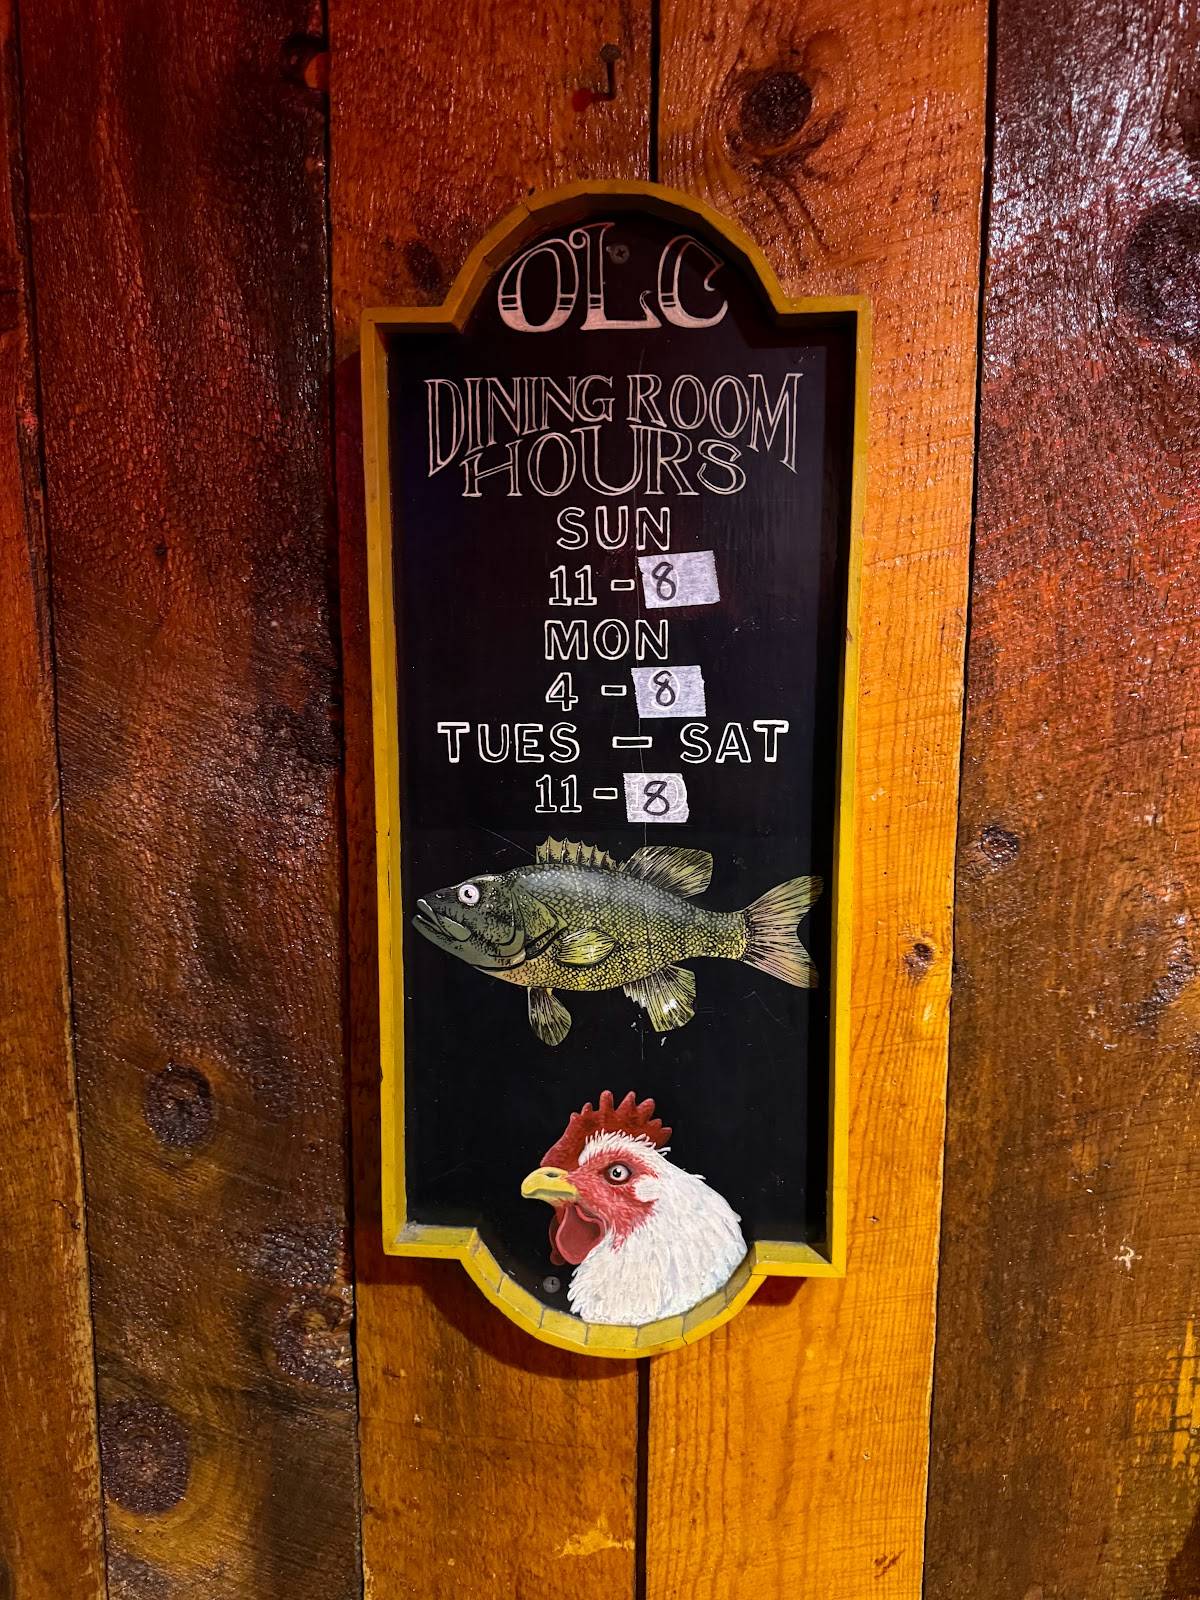 OLC
DINING ROOM
HOURS
SUN
11 - 8
MON
4 - 8
TUES - SAT
11 - 8